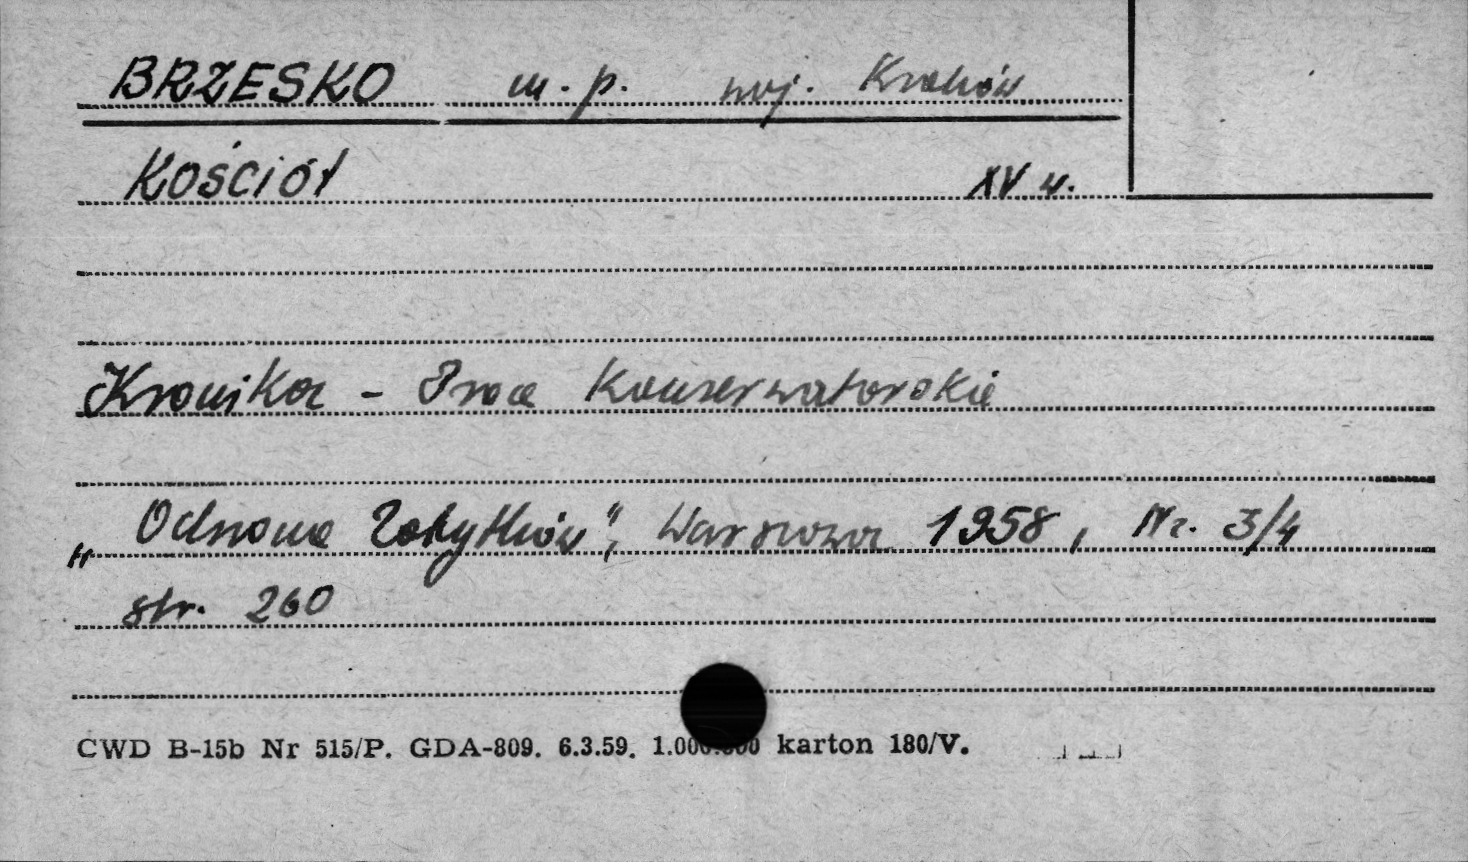 BRZESKO m.p. woj. Kraków
Kościół XV w.
Kronika - Prace Konserwatorskie
„Ochrona Zabytków", Warszawa 1958, Nr. 3/4
str. 260
CWD B-15b Nr 515/P. GDA-809. 6.3.59. 1.000.000 karton 180/V.